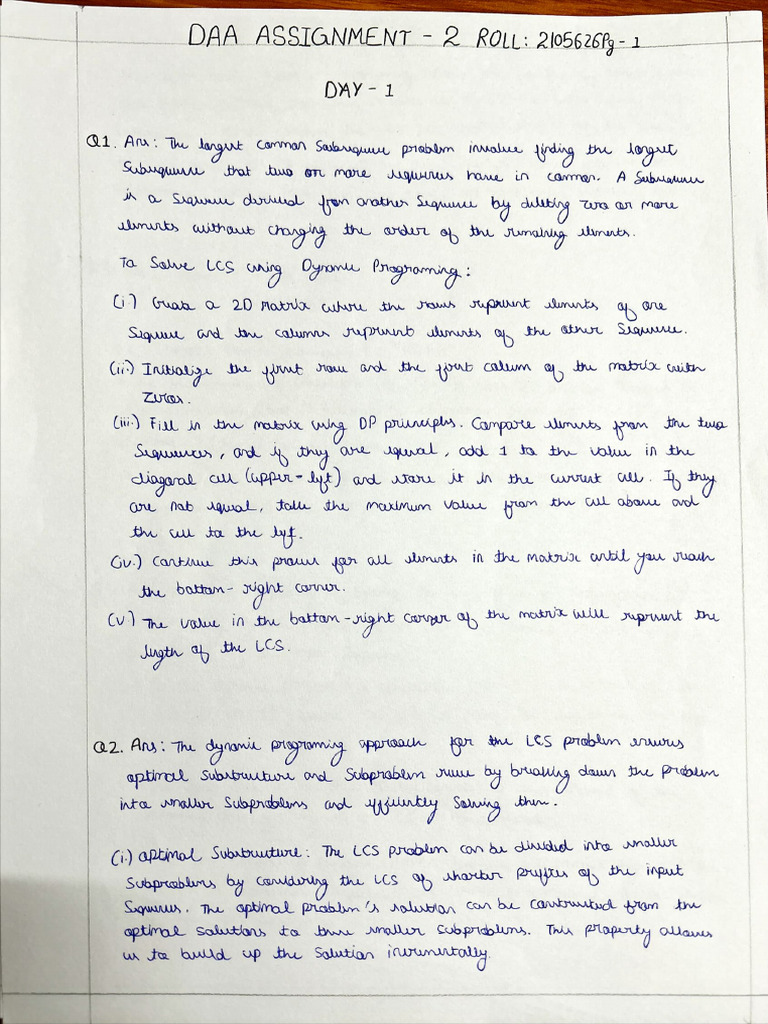 DAA ASSIGNMENT - 2 ROLL: 2105626 Pg - 1
DAY - 1
Q1. Ans: The longest common Subsequence problem involve finding the longest
Subsequence that two or more sequences have in common. A Subsequence
is a Sequence derived from another Sequence by deleting zero or more
elements without changing the order of the remaining elements.
To Solve LCS using Dynamic Programing:
(i.) Create a 2D Matrix where the rows represent elements of one
Sequence and the columns represent elements of the other Sequence.
(ii.) Initialize the first row and the first column of the matrix with
Zeros.
(iii.) Fill in the matrix using DP principles. Compare elements from the two
Sequences, and if they are equal, add 1 to the value in the
diagonal cell (upper-left) and store it in the current cell. If they
are not equal, take the maximum value from the cell above and
the cell to the left.
(iv.) Continue this process for all elements in the matrix until you reach
the bottom-right corner.
(v.) The value in the bottom-right corner of the matrix will represent the
length of the LCS.
Q2. Ans: The dynamic programing approach for the LCS problem ensures
optimal Substructure and Subproblem reuse by breaking down the problem
into smaller Subproblems and efficiently Solving them.
(i.) optimal Substructure: The LCS problem can be divided into smaller
Subproblems by considering the LCS of shorter prefixes of the input
Sequences. The optimal problem's solution can be constructed from the
optimal solutions to these smaller subproblems. This property allows
us to build up the Solution incrementally.